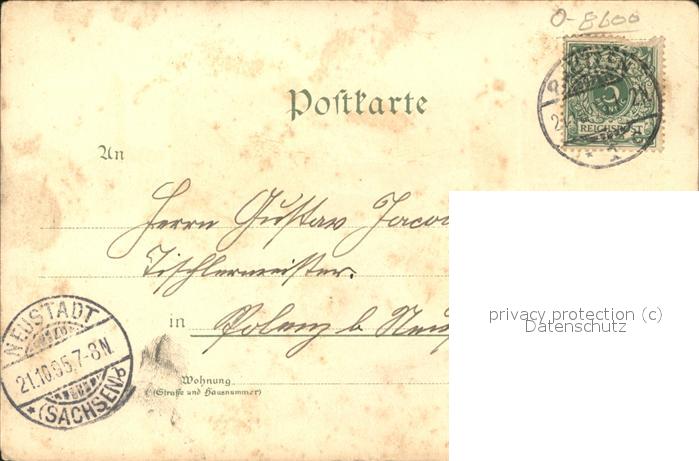 O-8600
BAUTZEN
REICHSPOST
Postkarte
An
Herrn Gustav Jaco
Tischlermeister.
in Polenz b Neus
NEUSTADT
21.10.95.7-8N.
*(SACHSEN)b
Wohnung
(Straße und Hausnummer)
privacy protection (c)
Datenschutz